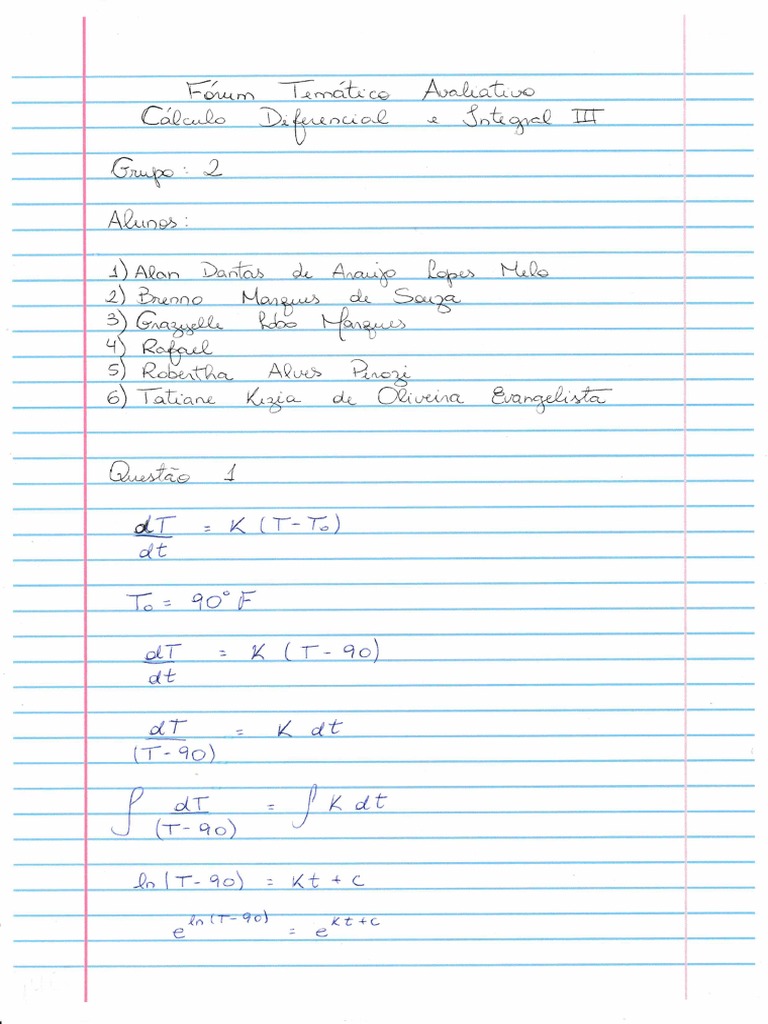 Fórum Temático Avaliativo
Cálculo Diferencial e Integral III
Grupo: 2
Alunos:
1) Alan Dantas de Araujo Lopes Melo
2) Brenno Marques de Souza
3) Grazyelle Lobo Marques
4) Rafael
5) Robertha Alves Perozi
6) Tatiane Kezia de Oliveira Evangelista
Questão 1
dT/dt = K (T - T₀)
T₀ = 90° F
dT/dt = K (T - 90)
dT/(T - 90) = K dt
∫ dT/(T - 90) = ∫ K dt
ln (T - 90) = Kt + c
e^(ln (T - 90)) = e^(Kt + c)